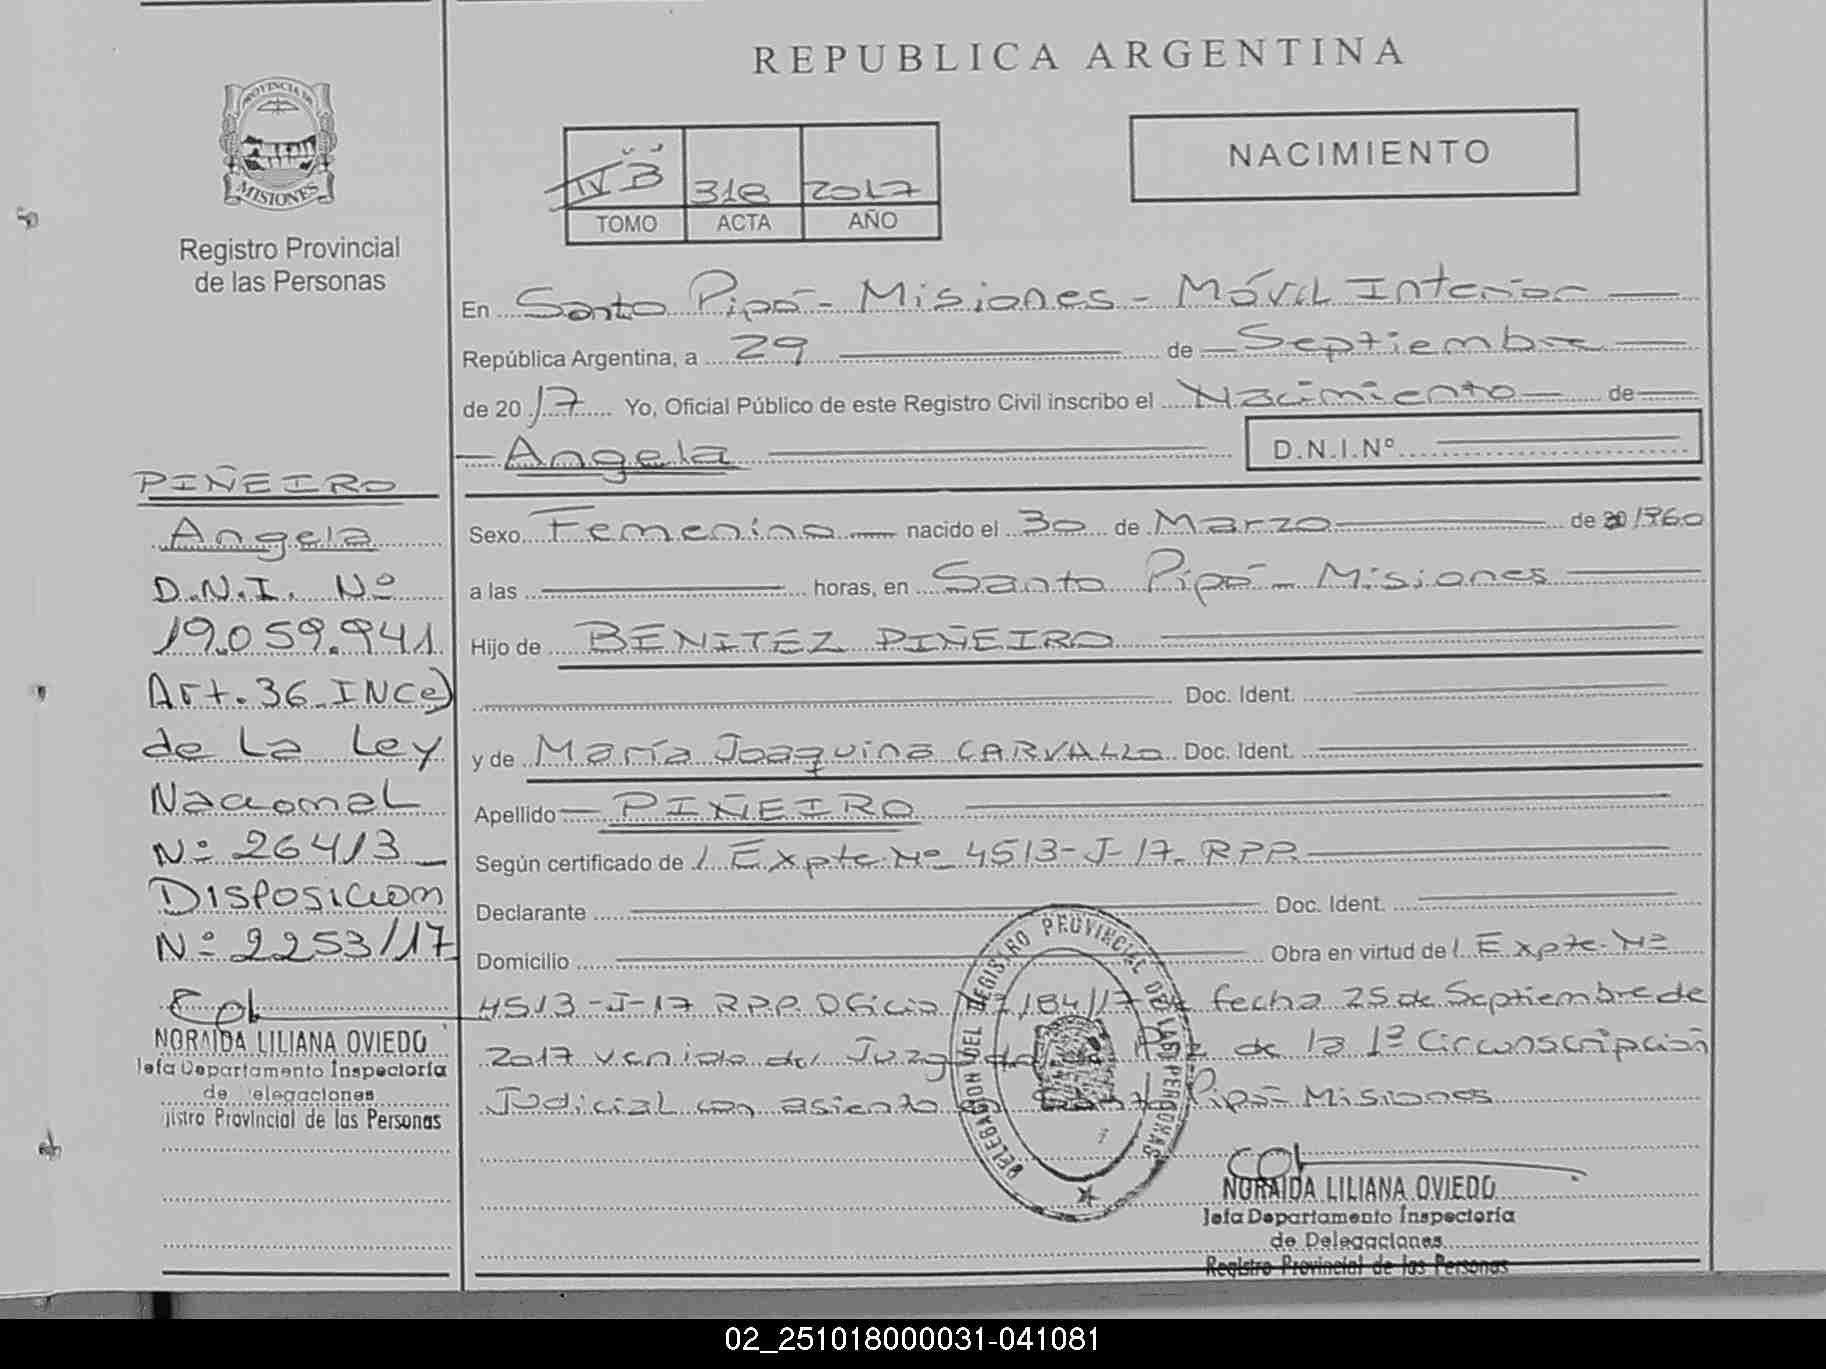 REPUBLICA ARGENTINA
PROVINCIA DE
MISIONES
Registro Provincial
de las Personas
NACIMIENTO
IV B 318 2017
TOMO ACTA AÑO
En Santo Pipó - Misiones - Móvil Interior
República Argentina, a 29 de Septiembre
de 2017 Yo, Oficial Público de este Registro Civil inscribo el Nacimiento de
Angela D.N.I.Nº
PIÑEIRO
Angela
D.N.I. Nº
19.059.941
Art. 36 INC e)
de La Ley
Nacional
Nº 26413
DISPOSICION
Nº 2253/17
NORAIDA LILIANA OVIEDO
Jefa Departamento Inspectoría
de elegaciones
istro Provincial de las Personas
Sexo Femenino nacido el 30 de Marzo de 1960
a las horas, en Santo Pipó - Misiones
Hijo de BENITEZ PIÑEIRO
Doc. Ident.
y de María Joaquina CARVALLO Doc. Ident.
Apellido PIÑEIRO
Según certificado de l Expte Nº 4513-J-17. RPP.
Declarante Doc. Ident.
Domicilio Obra en virtud del Expte. Nº
4513-J-17 RPP. Oficio Nº 184/17 de fecha 25 de Septiembre de
2017 venido del Juzgado de Paz de la 1ª Circunscripción
Judicial con asiento en Santo Pipó - Misiones
DELEGACION DEL REGISTRO PROVINCIAL DE LAS PERSONAS
NORAIDA LILIANA OVIEDO
Jefa Departamento Inspectoría
de Delegaciones
Registro Provincial de las Personas
02_251018000031-041081